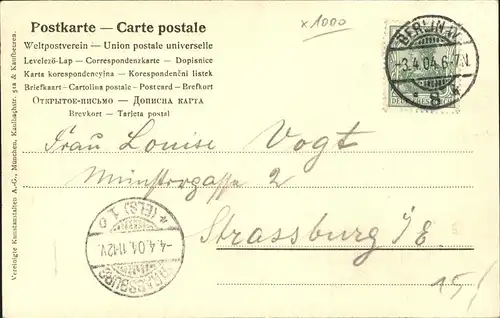 Postkarte — Carte postale
Weltpostverein — Union postale universelle
Levelező-Lap — Correspondenzkarte — Dopisnice
Karta korespondencyjna — Korespondenční listek
Briefkaart - Cartolina postale - Postcard - Brefkort
Открытое-письмо — Дописна карта
Brevkort — Tarjeta postal
x1000
BERLIN W.
-3.4.04.6-7N.
* 8 *
Frau Louise Vogt
Münstergasse 2
Strassburg i/E.
STRASSBURG
-4.4.04.11-12V.
* (ELS) 1 D
15/
Vereinigte Kunstanstalten A.-G., München, Kaulbachstr. 51a & Kaufbeuren.